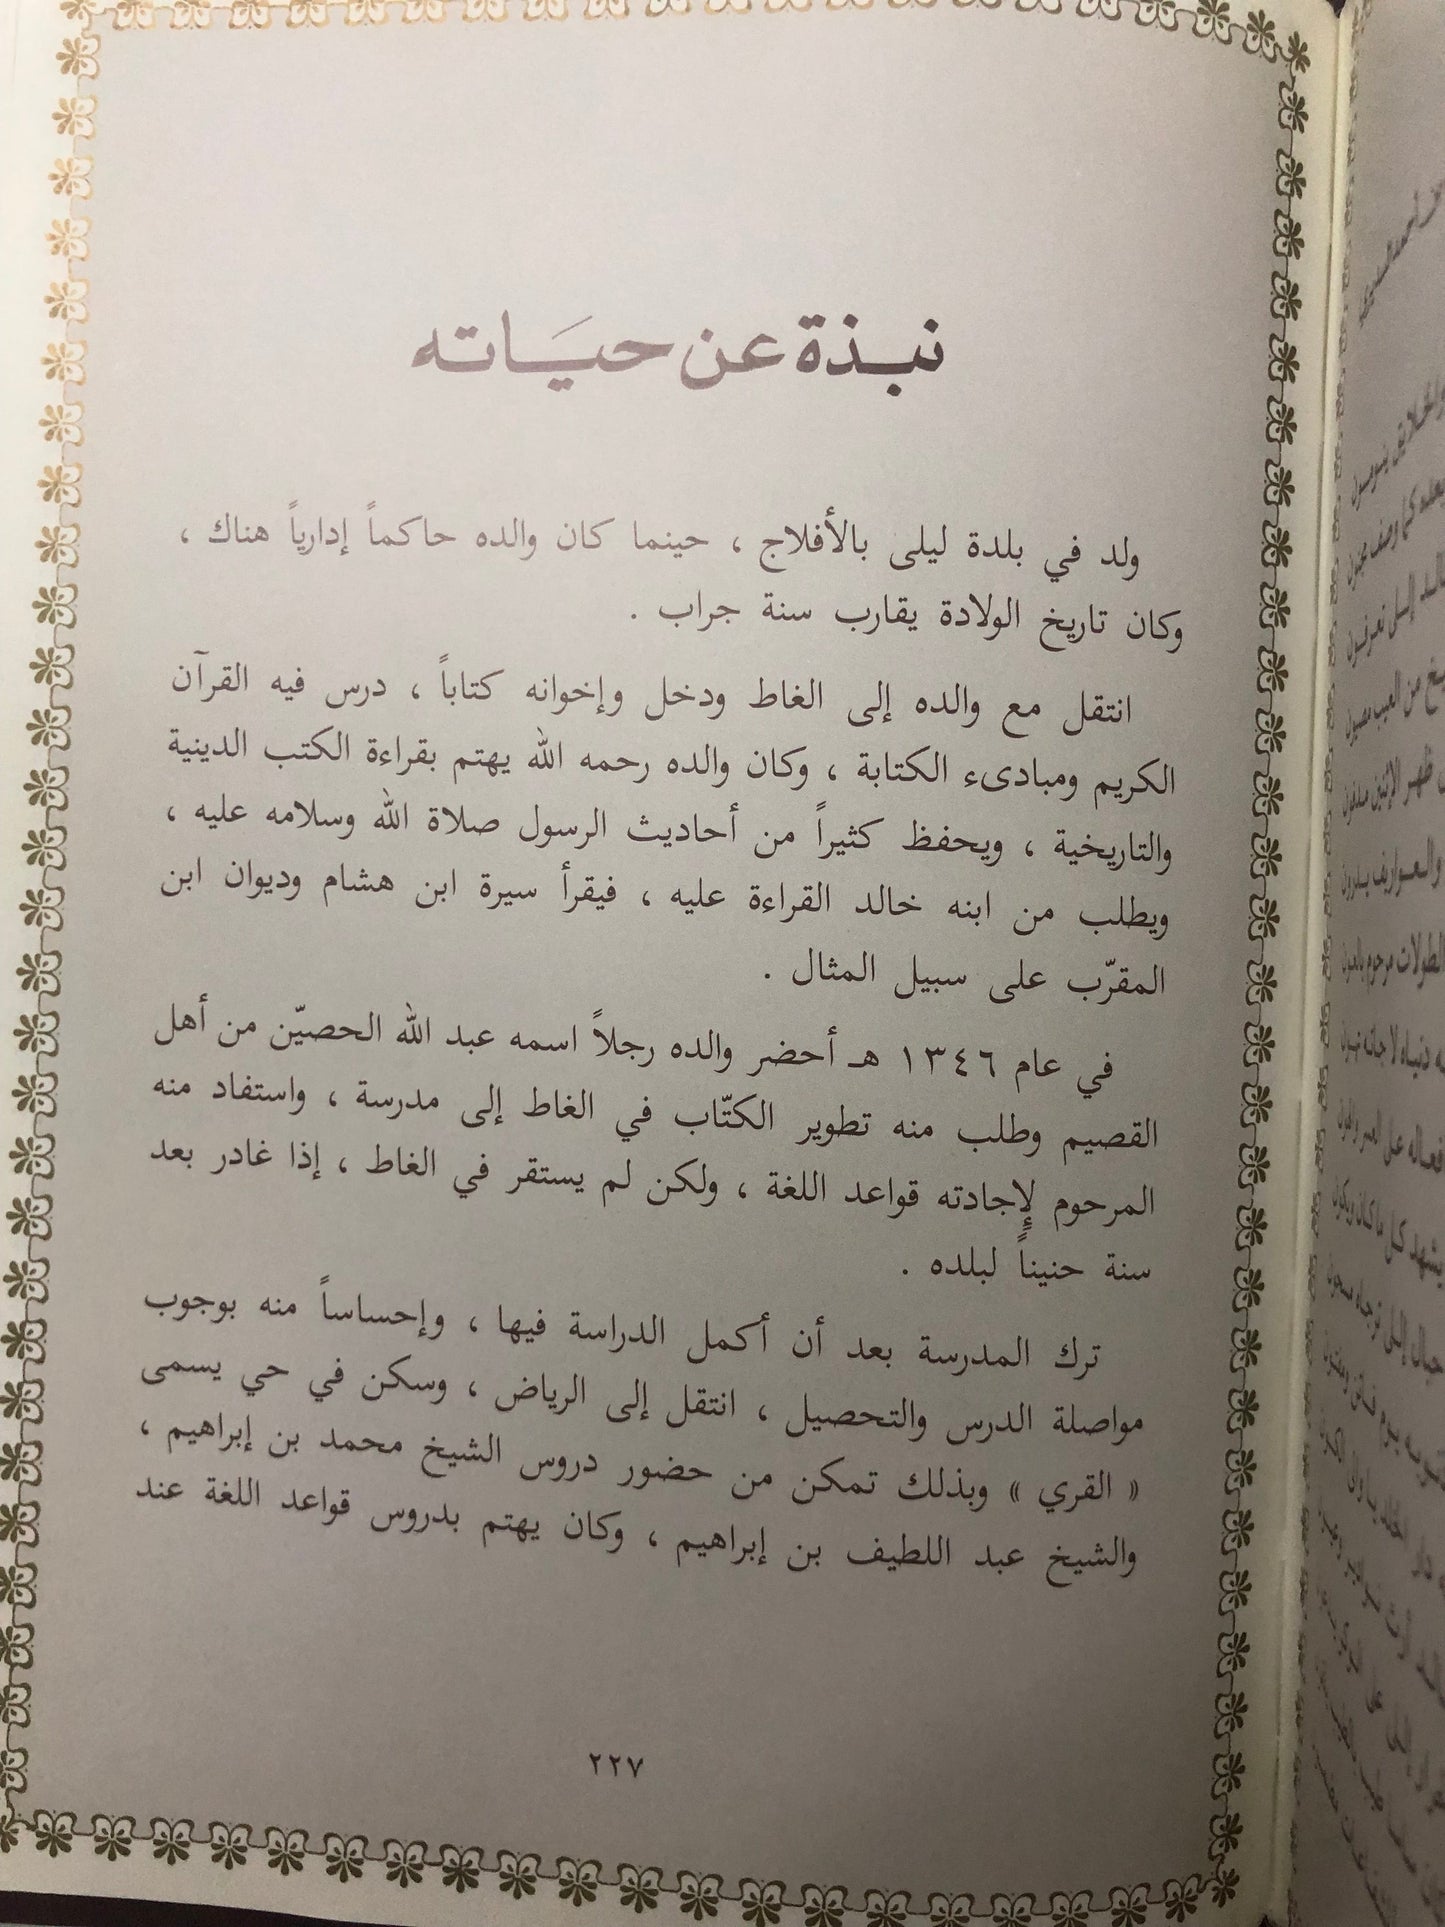 نبذة عن حياته
ولد في بلدة ليلى بالأفلاج ، حينما كان والده حاكماً إدارياً هناك ،
وكان تاريخ الولادة يقارب سنة جراب .
انتقل مع والده إلى الغاط ودخل وإخوانه كتاباً ، درس فيه القرآن
الكريم ومبادىء الكتابة ، وكان والده رحمه الله يهتم بقراءة الكتب الدينية
والتاريخية ، ويحفظ كثيراً من أحاديث الرسول صلاة الله وسلامه عليه ،
ويطلب من ابنه خالد القراءة عليه ، فيقرأ سيرة ابن هشام وديوان ابن
المقرّب على سبيل المثال .
في عام ١٣٤٦ هـ أحضر والده رجلاً اسمه عبد الله الحصيّن من أهل
القصيم وطلب منه تطوير الكتّاب في الغاط إلى مدرسة ، واستفاد منه
المرحوم لإِجادته قواعد اللغة ، ولكن لم يستقر في الغاط ، إذا غادر بعد
سنة حنيناً لبلده .
ترك المدرسة بعد أن أكمل الدراسة فيها ، وإحساساً منه بوجوب
مواصلة الدرس والتحصيل ، انتقل إلى الرياض ، وسكن في حي يسمى
« القري » وبذلك تمكن من حضور دروس الشيخ محمد بن إبراهيم ،
والشيخ عبد اللطيف بن إبراهيم ، وكان يهتم بدروس قواعد اللغة عند
٢٢٧